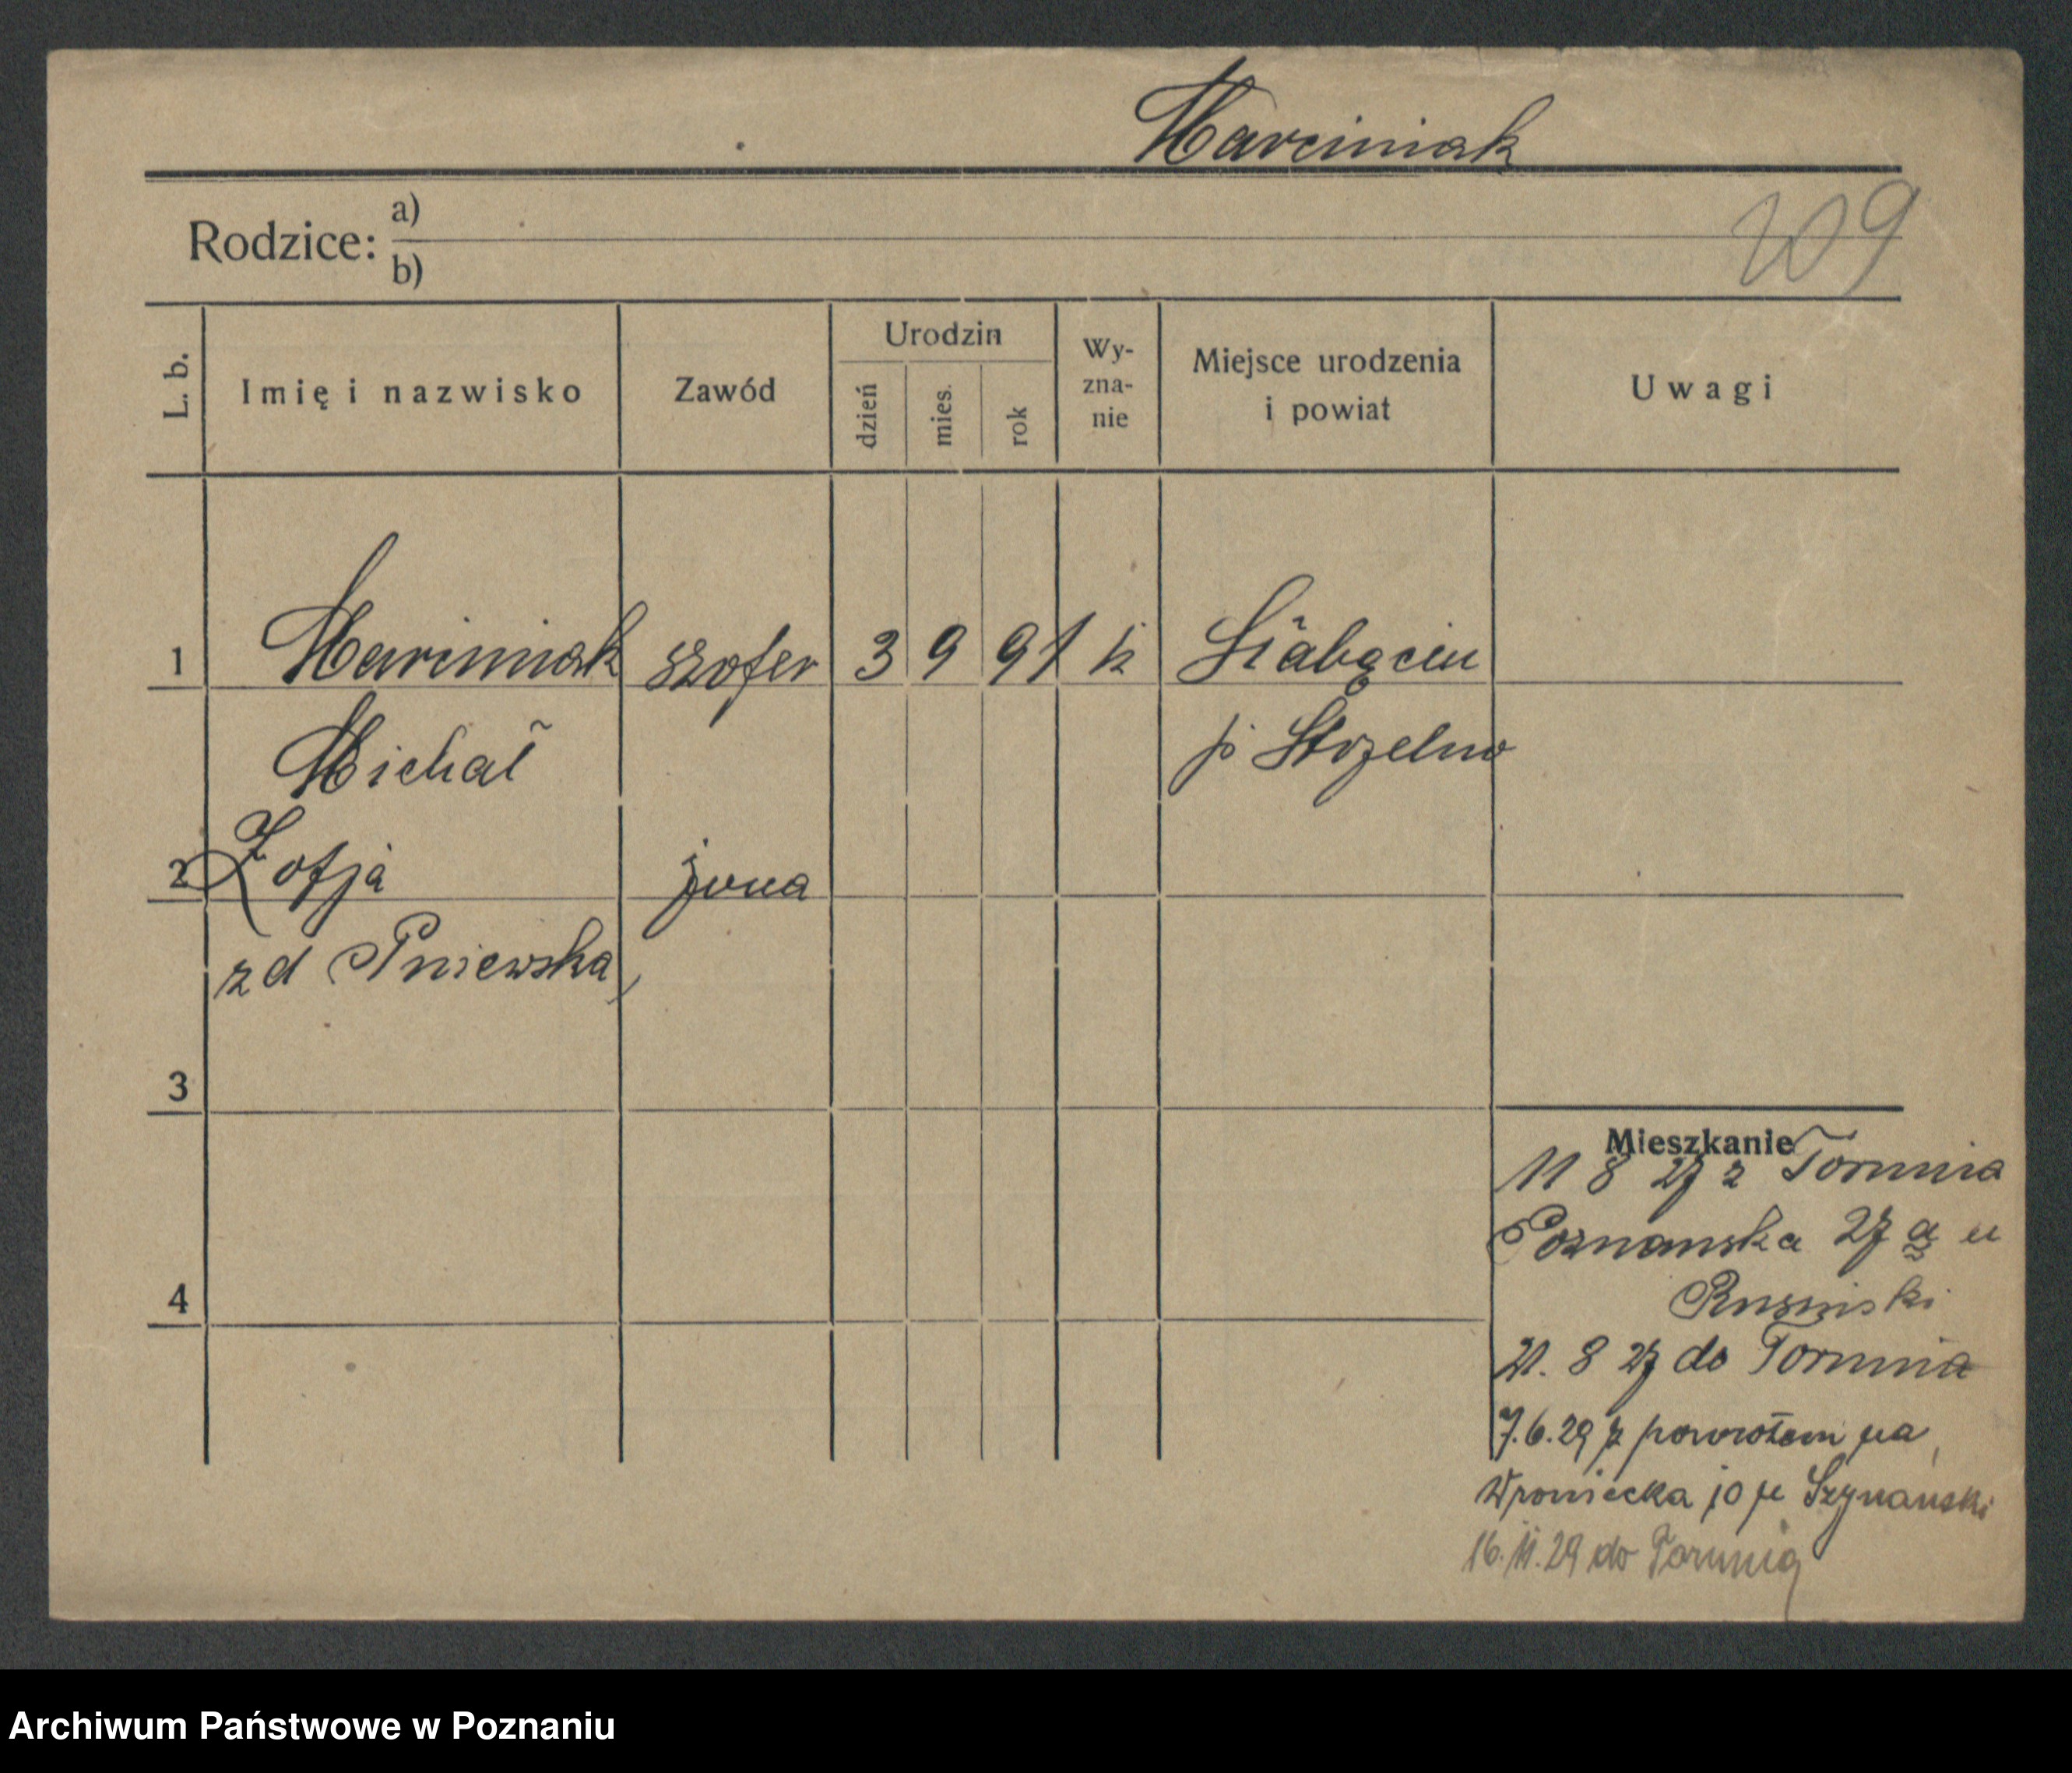 Marciniak
Rodzice: a)
b)
W9
L. b. Imię i nazwisko Zawód Urodzin dzień mies. rok Wy-zna-nie Miejsce urodzenia i powiat Uwagi
1 Marciniak szofer 3 9 91 k Słabęcin
Michał p Strzelno
2 Zofja żona
zd Pniewska
3
Mieszkanie
11 8 27 z Torunia
Poznanska 27 a u
4
21. 8 27 do Torunia
7.6.29 z powrotem na
Wroniecka 10 u Szymański
16.11.29 do Torunia
Archiwum Państwowe w Poznaniu